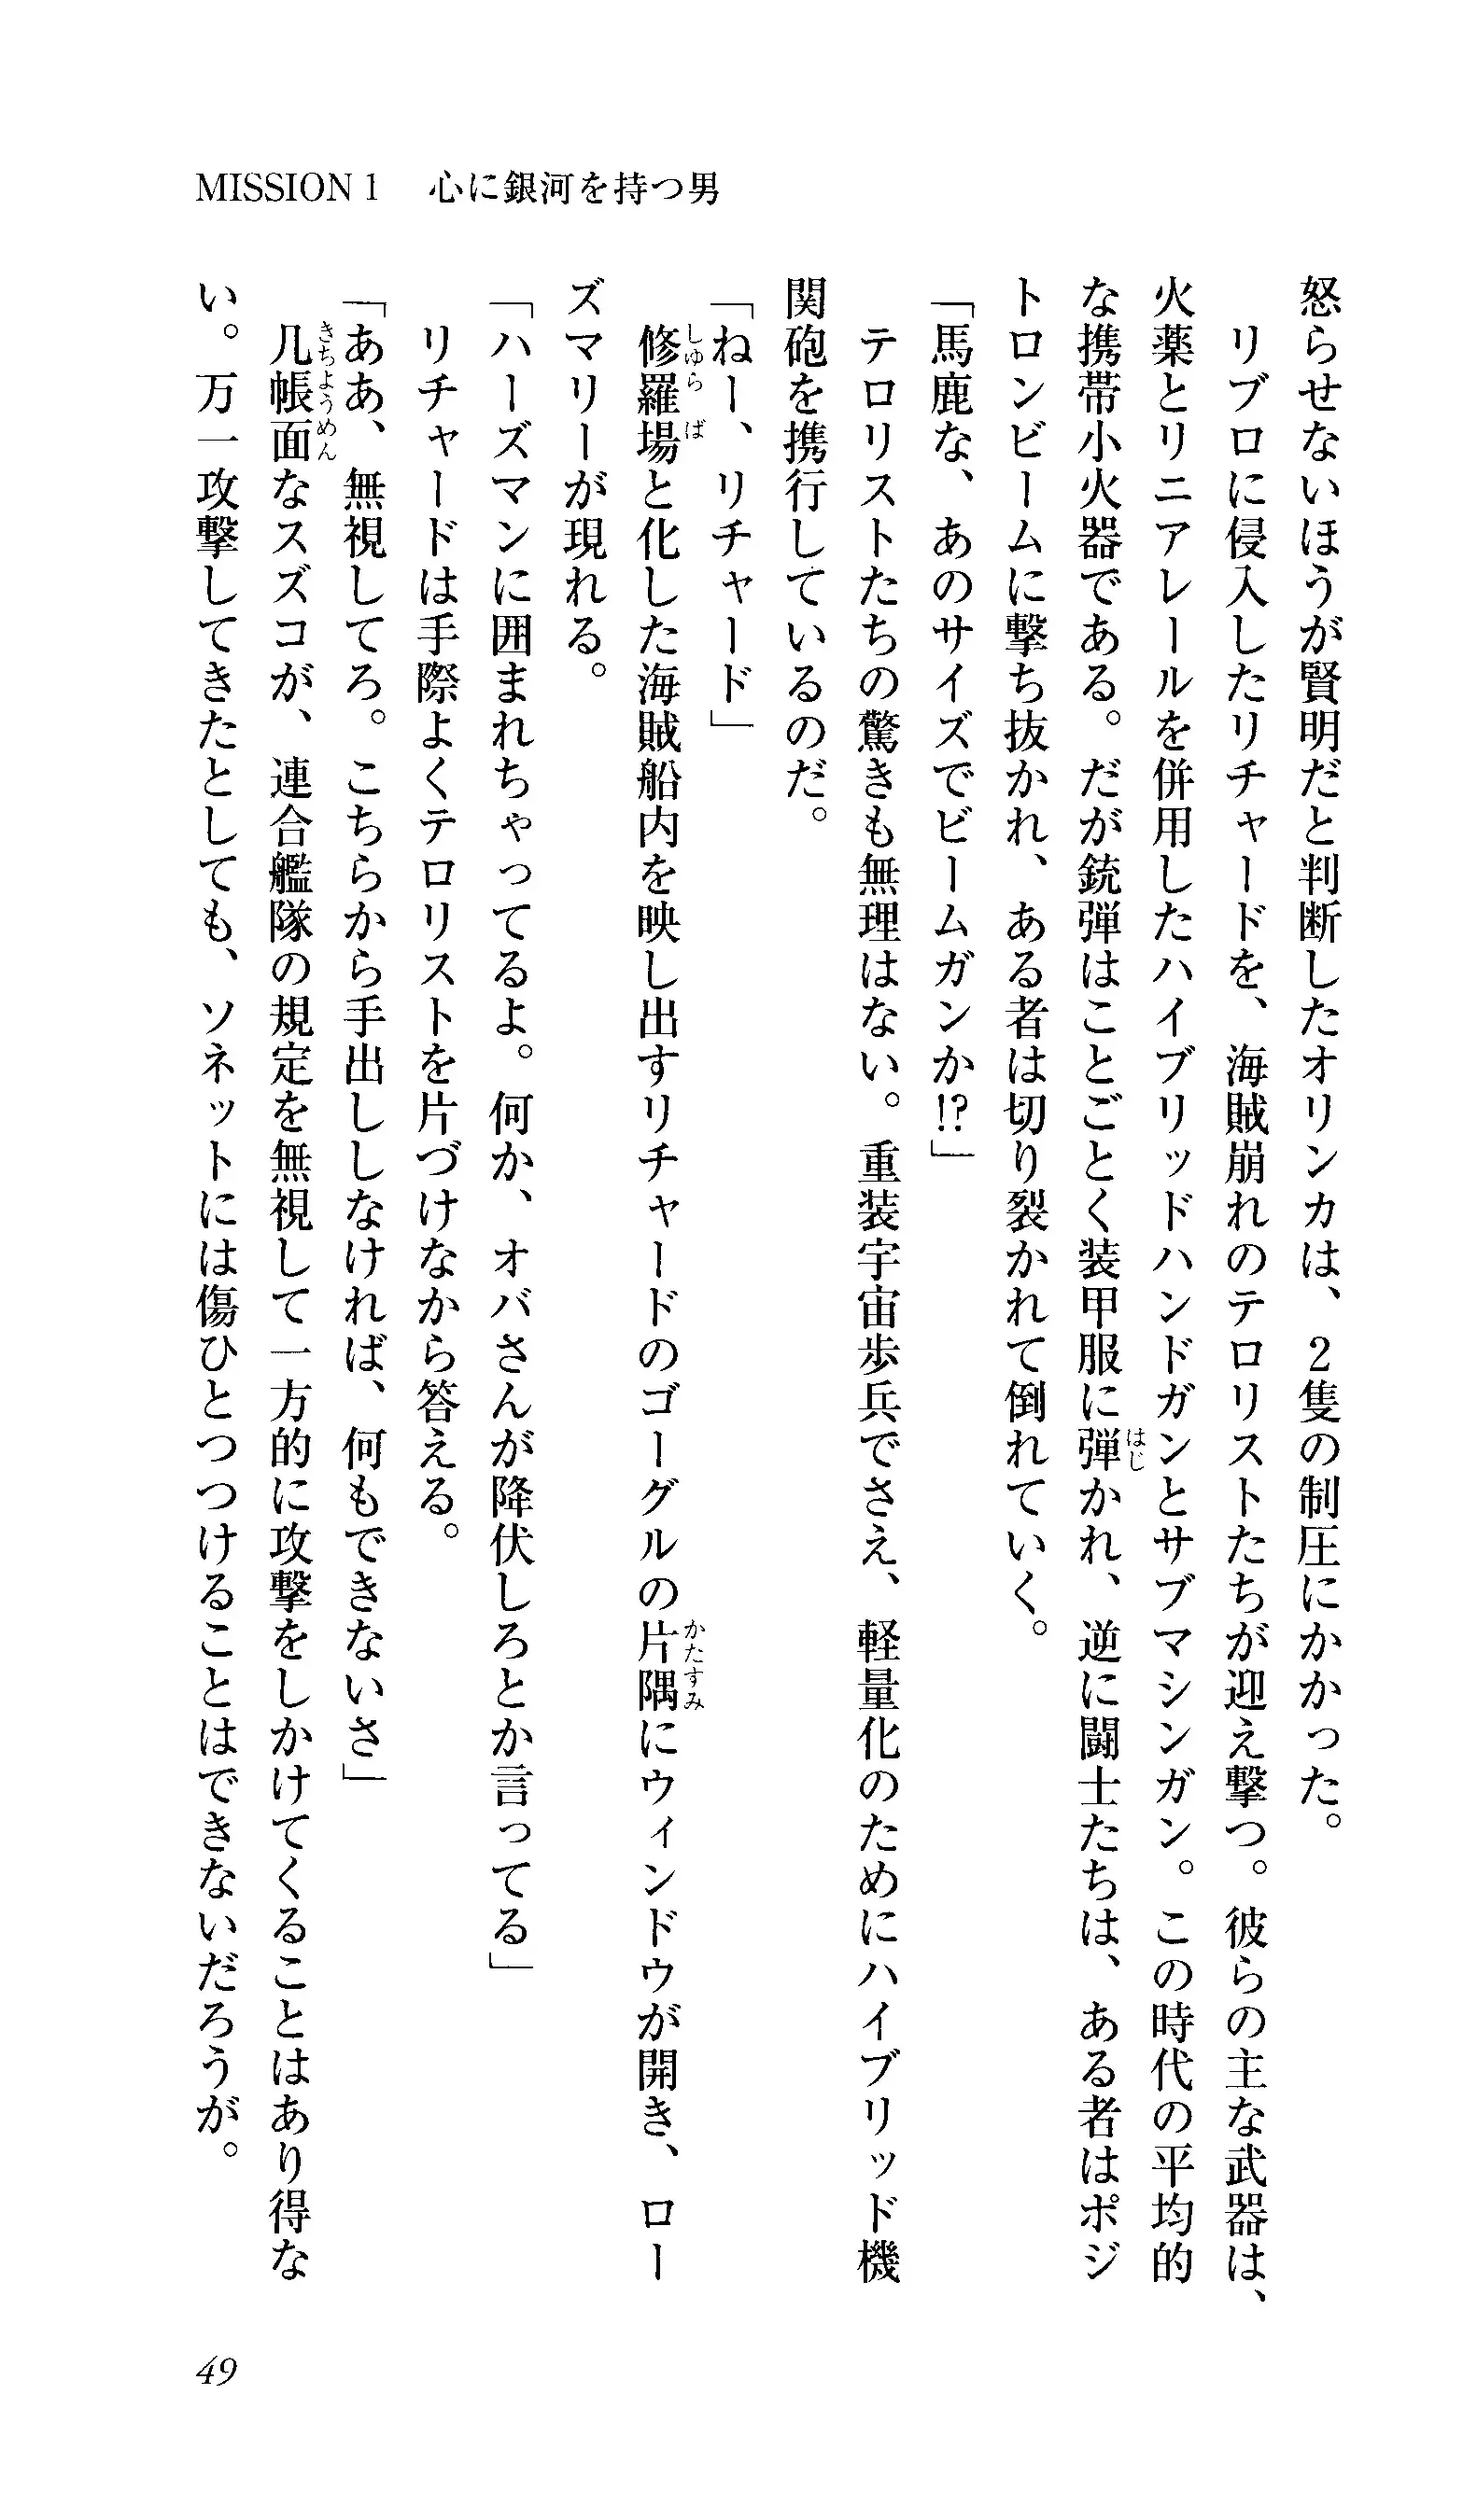 MISSION 1　心に銀河を持つ男
怒らせないほうが賢明だと判断したオリンカは、2隻の制圧にかかった。
　リブロに侵入したリチャードを、海賊崩れのテロリストたちが迎え撃つ。彼らの主な武器は、
火薬とリニアレールを併用したハイブリッドハンドガンとサブマシンガン。この時代の平均的
な携帯小火器である。だが銃弾はことごとく装甲服に弾かれ、逆に闘士たちは、ある者はポジ
トロンビームに撃ち抜かれ、ある者は切り裂かれて倒れていく。
「馬鹿な、あのサイズでビームガンか!?」
　テロリストたちの驚きも無理はない。重装宇宙歩兵でさえ、軽量化のためにハイブリッド機
関砲を携行しているのだ。
「ねー、リチャード」
　修羅場と化した海賊船内を映し出すリチャードのゴーグルの片隅にウィンドウが開き、ロー
ズマリーが現れる。
「ハーズマンに囲まれちゃってるよ。何か、オバさんが降伏しろとか言ってる」
　リチャードは手際よくテロリストを片づけながら答える。
「ああ、無視してろ。こちらから手出ししなければ、何もできないさ」
　几帳面なスズコが、連合艦隊の規定を無視して一方的に攻撃をしかけてくることはあり得な
い。万一攻撃してきたとしても、ソネットには傷ひとつつけることはできないだろうが。
49